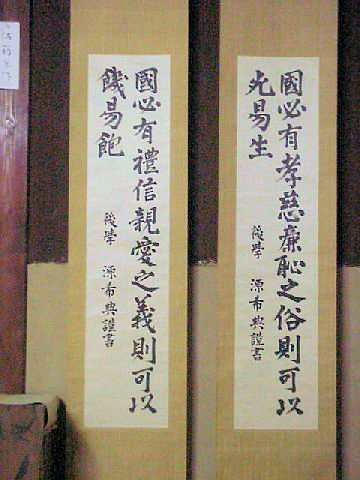 國必有孝慈廉恥之俗則可以
死易生
後學 源希典謹書
國必有禮信親愛之義則可以
饑易飽
後學 源希典謹書